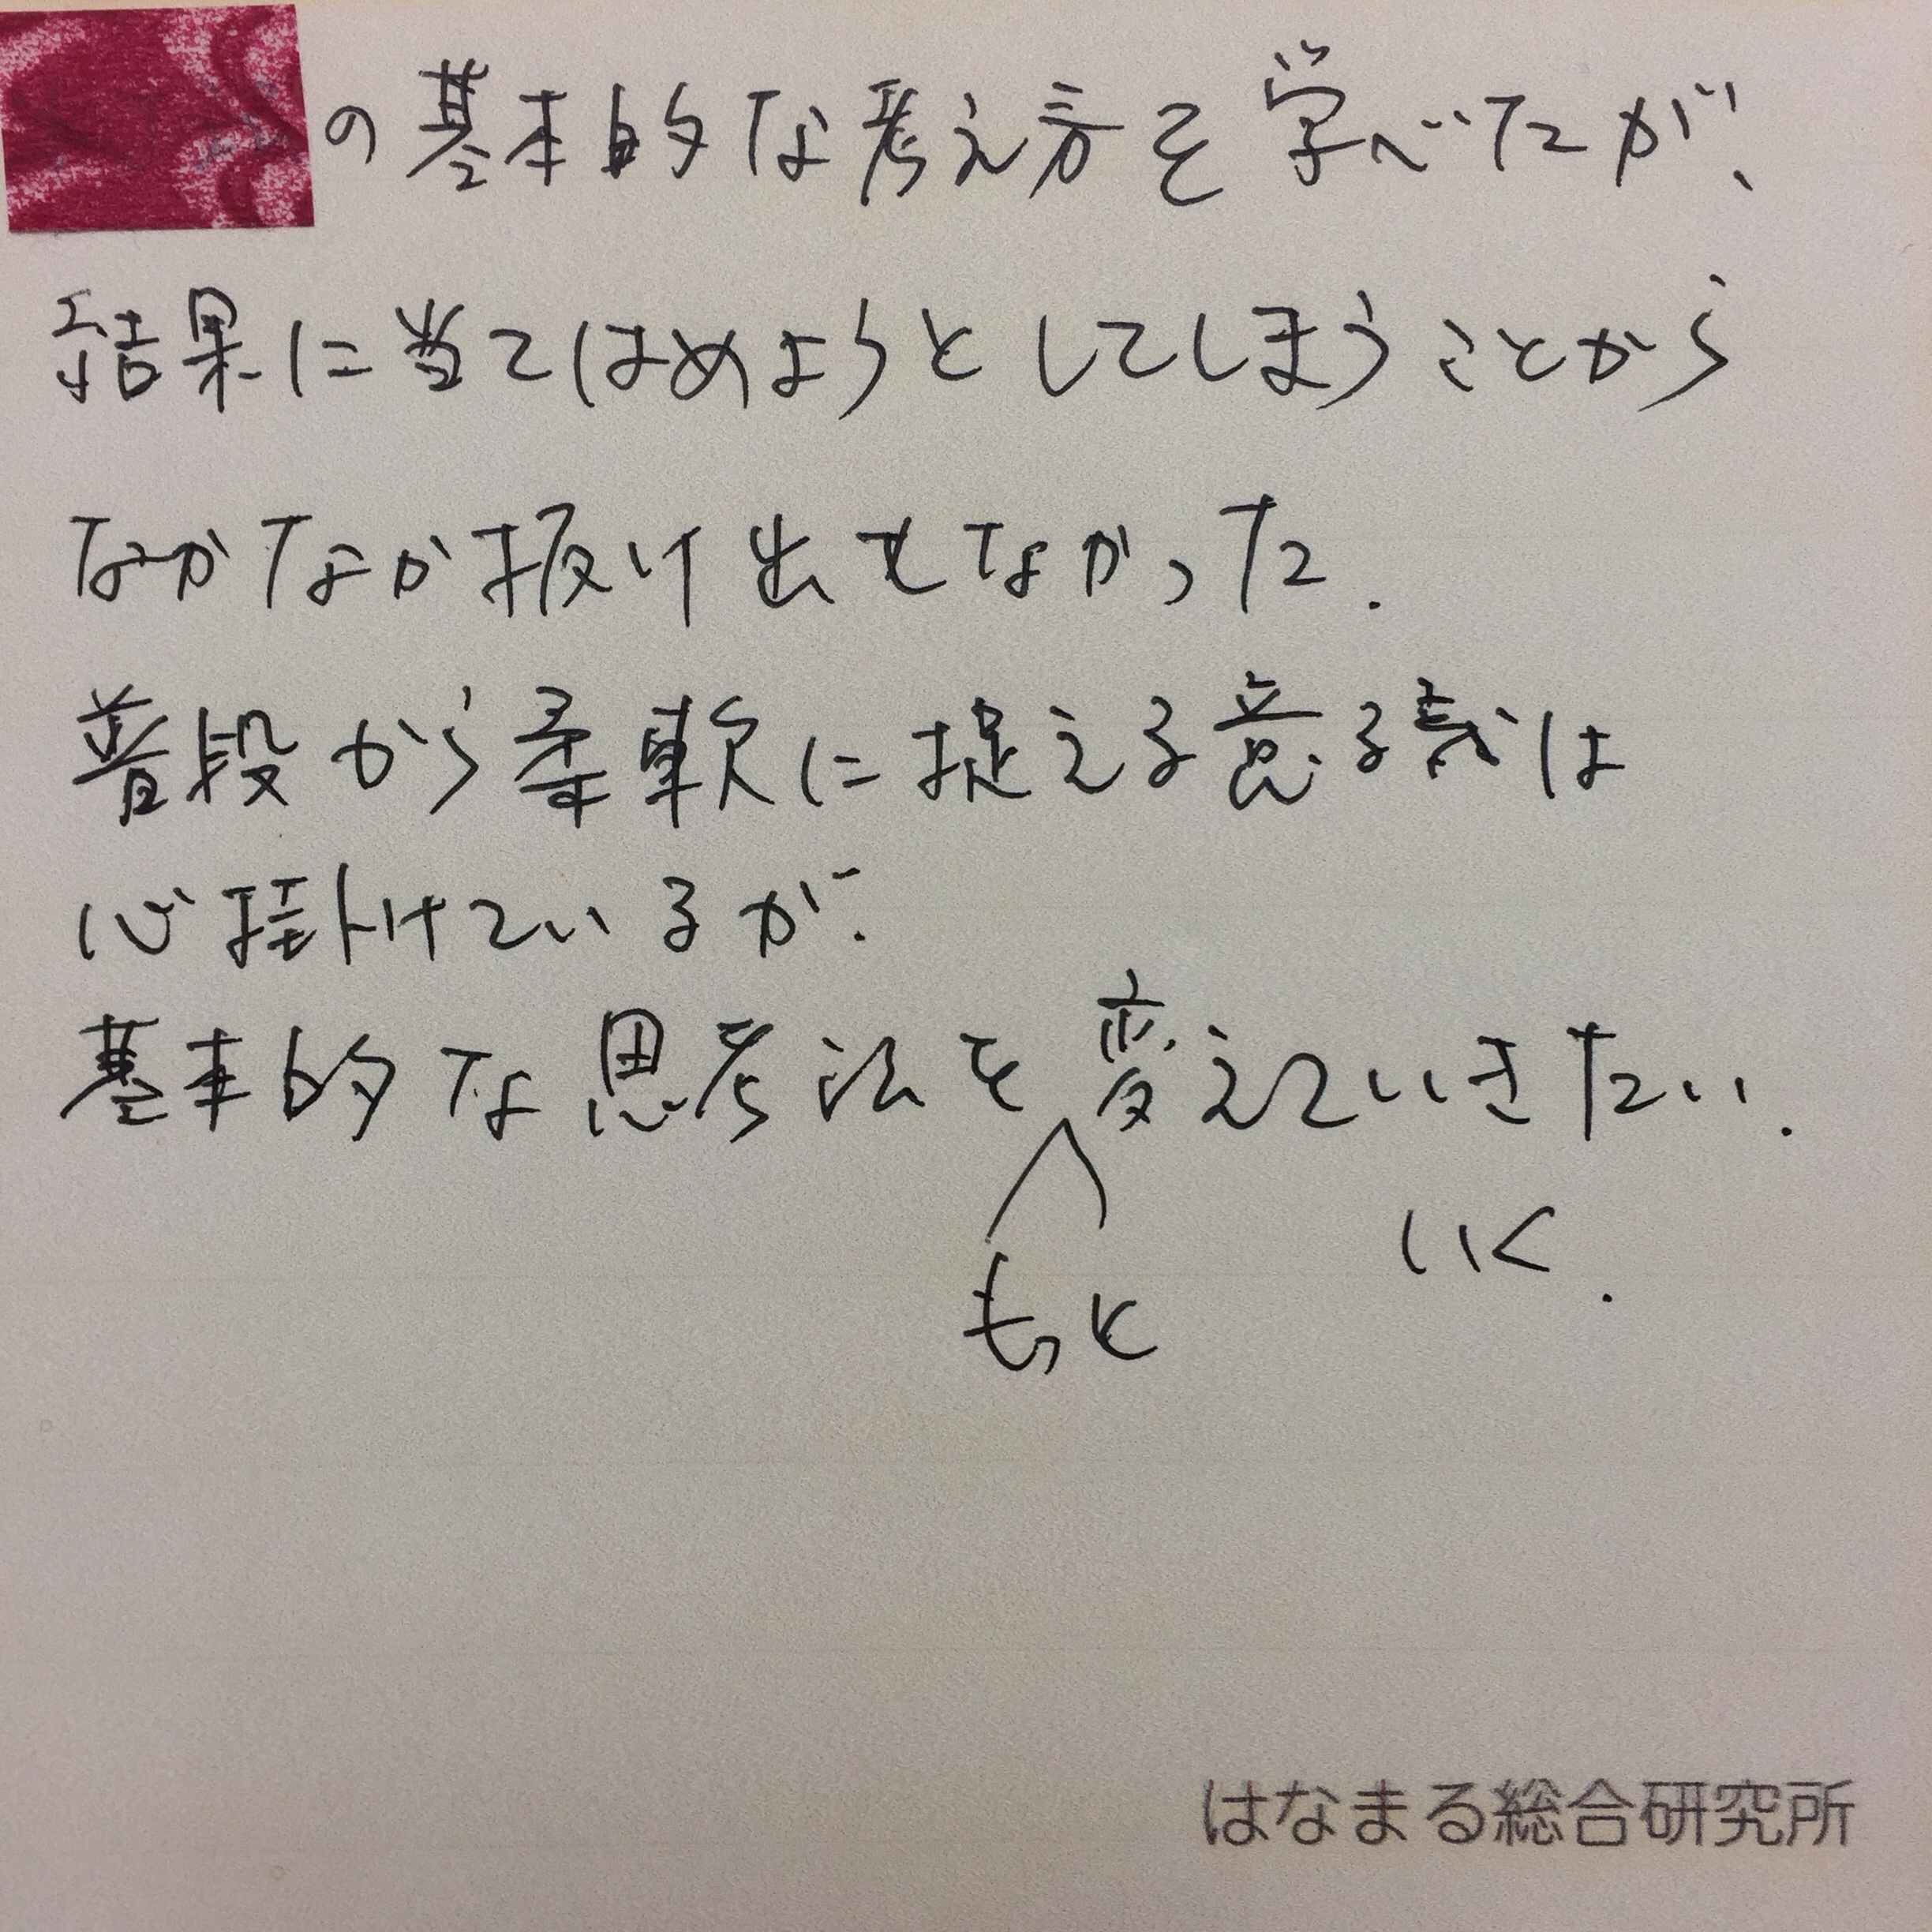 の基本的な考え方を学べたが、
結果に当てはめようとしてしまうことから
なかなか抜け出せなかった.
普段から柔軟に捉える意識は
心掛けているが.
基本的な思考法を変えていきたい.
いく.
もっと
はなまる総合研究所